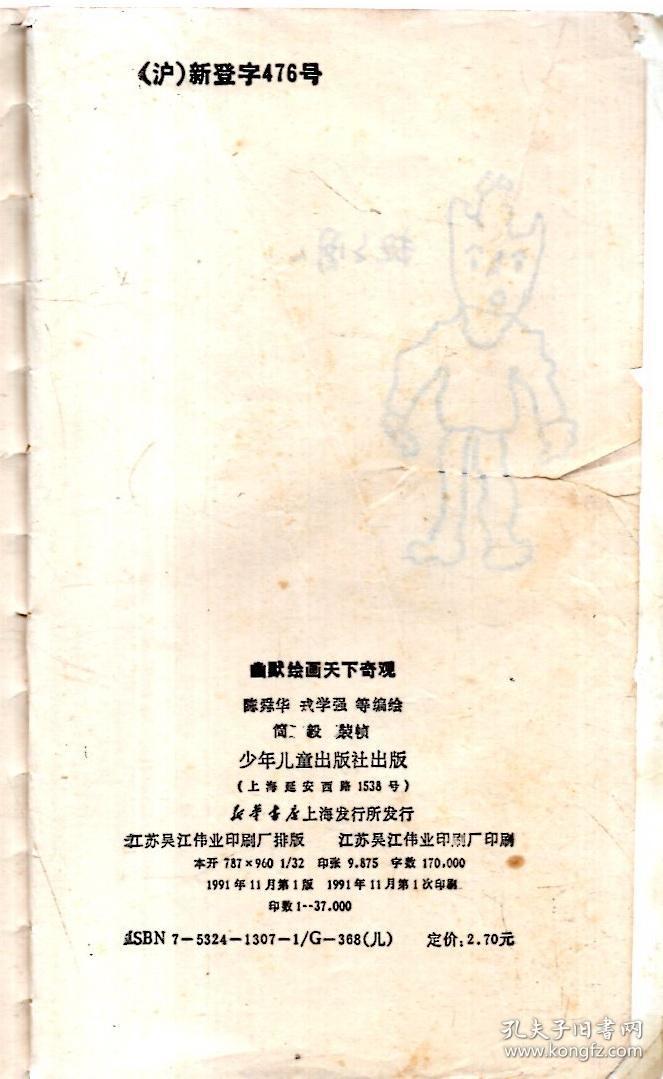 (沪)新登字476号
幽默绘画天下奇观
陈舜华 戎学强 等编绘
简毅 装帧
少年儿童出版社出版
(上海延安西路1538号)
新华书店上海发行所发行
江苏吴江伟业印刷厂排版 江苏吴江伟业印刷厂印刷
本开 787×960 1/32 印张 9.875 字数 170,000
1991年11月第1版 1991年11月第1次印刷
印数1--37,000
ISBN 7-5324-1307-1/G-368(儿) 定价:2.70元
孔夫子旧书网
www.kongfz.com